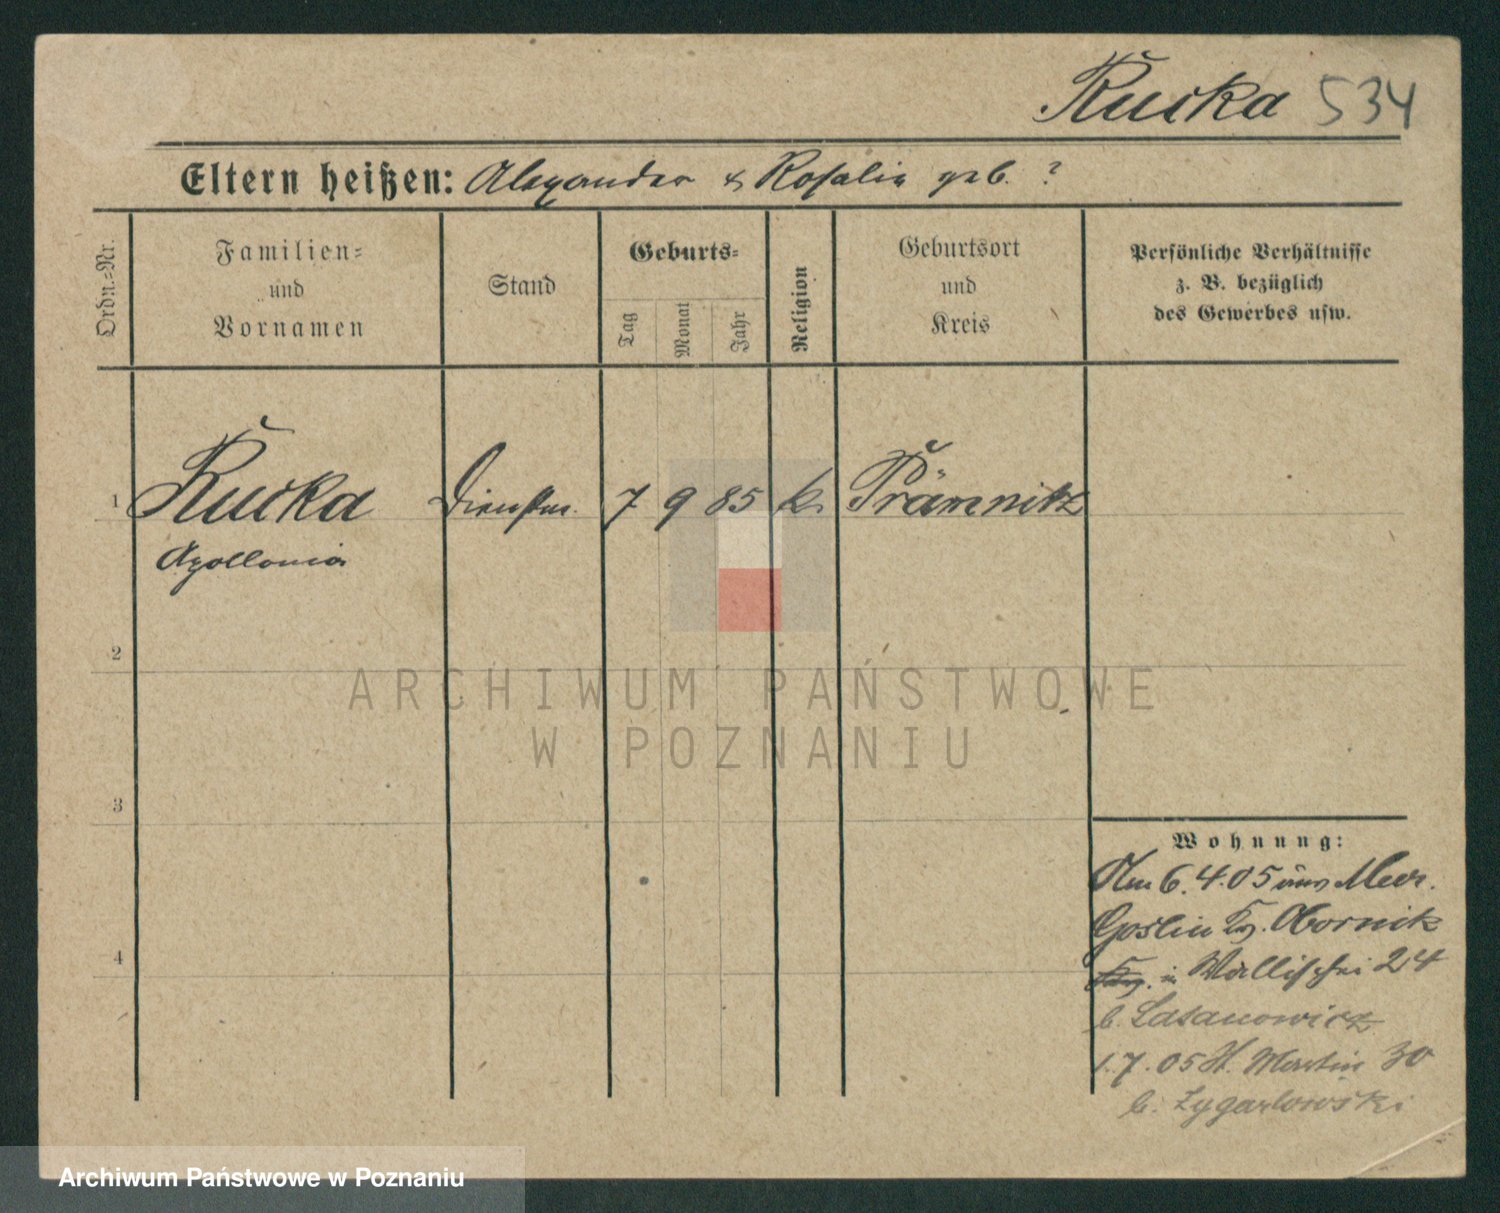 Rucka 534
Eltern heißen: Alexander & Rosalie geb. ?
Ordn.=Nr.
Familien=
und
Vornamen
Stand
Geburts=
Tag
Monat
Jahr
Religion
Geburtsort
und
Kreis
Persönliche Verhältnisse
z. B. bezüglich
des Gewerbes usw.
1 Rucka Dienstm. 7 9 85 k. Prämnitz
Apollonia
2
3
4
Wohnung:
Am 6.4.05 aus Mur.
Goslin Kr. Obornik
in Wallischei 24
b.
1.7.05 St. Martin 30
b.
ARCHIWUM PAŃSTWOWE
W POZNANIU
Archiwum Państwowe w Poznaniu